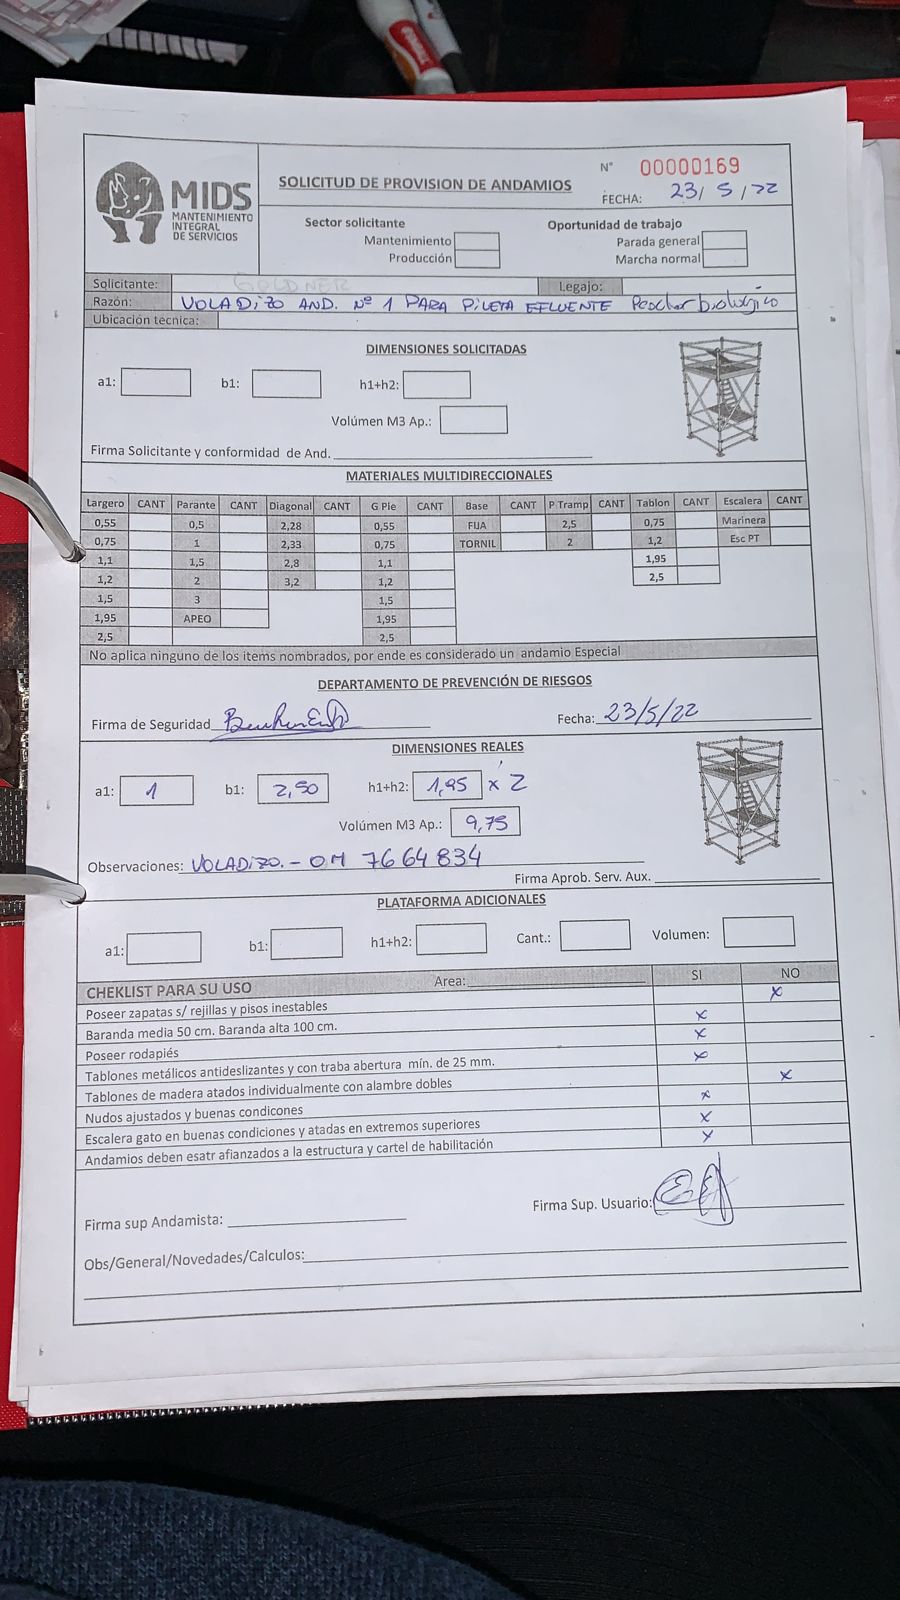 MIDS
MANTENIMIENTO
INTEGRAL
DE SERVICIOS
SOLICITUD DE PROVISION DE ANDAMIOS
N° 00000169
FECHA: 23/5/22
Sector solicitante
Mantenimiento
Producción
Oportunidad de trabajo
Parada general
Marcha normal
Solicitante: GOLDNER Legajo:
Razón: VOLADIZO AND. Nº 1 PARA PILETA EFLUENTE biológico
Ubicación técnica:
DIMENSIONES SOLICITADAS
a1: b1: h1+h2:
Volúmen M3 Ap.:
Firma Solicitante y conformidad de And.
MATERIALES MULTIDIRECCIONALES
Largero CANT Parante CANT Diagonal CANT G Pie CANT Base CANT P Tramp CANT Tablon CANT Escalera CANT
0,55 0,5 2,28 0,55 FIJA 2,5 0,75 Marinera
0,75 1 2,33 0,75 TORNIL 2 1,2 Esc PT
1,1 1,5 2,8 1,1 1,95
1,2 2 3,2 1,2 2,5
1,5 3 1,5
1,95 APEO 1,95
2,5 2,5
No aplica ninguno de los items nombrados, por ende es considerado un andamio Especial
DEPARTAMENTO DE PREVENCIÓN DE RIESGOS
Firma de Seguridad Fecha: 23/5/22
DIMENSIONES REALES
a1: 1 b1: 2,50 h1+h2: 1,95 x 2
Volúmen M3 Ap.: 9,75
Observaciones: VOLADIZO.- OM 7664834
Firma Aprob. Serv. Aux.
PLATAFORMA ADICIONALES
a1: b1: h1+h2: Cant.: Volumen:
CHEKLIST PARA SU USO Area: SI NO
Poseer zapatas s/ rejillas y pisos inestables x
Baranda media 50 cm. Baranda alta 100 cm. x
Poseer rodapiés x
Tablones metálicos antideslizantes y con traba abertura mín. de 25 mm. x
Tablones de madera atados individualmente con alambre dobles x
Nudos ajustados y buenas condicones x
Escalera gato en buenas condiciones y atadas en extremos superiores x
Andamios deben esatr afianzados a la estructura y cartel de habilitación x
Firma sup Andamista: Firma Sup. Usuario:
Obs/General/Novedades/Calculos: